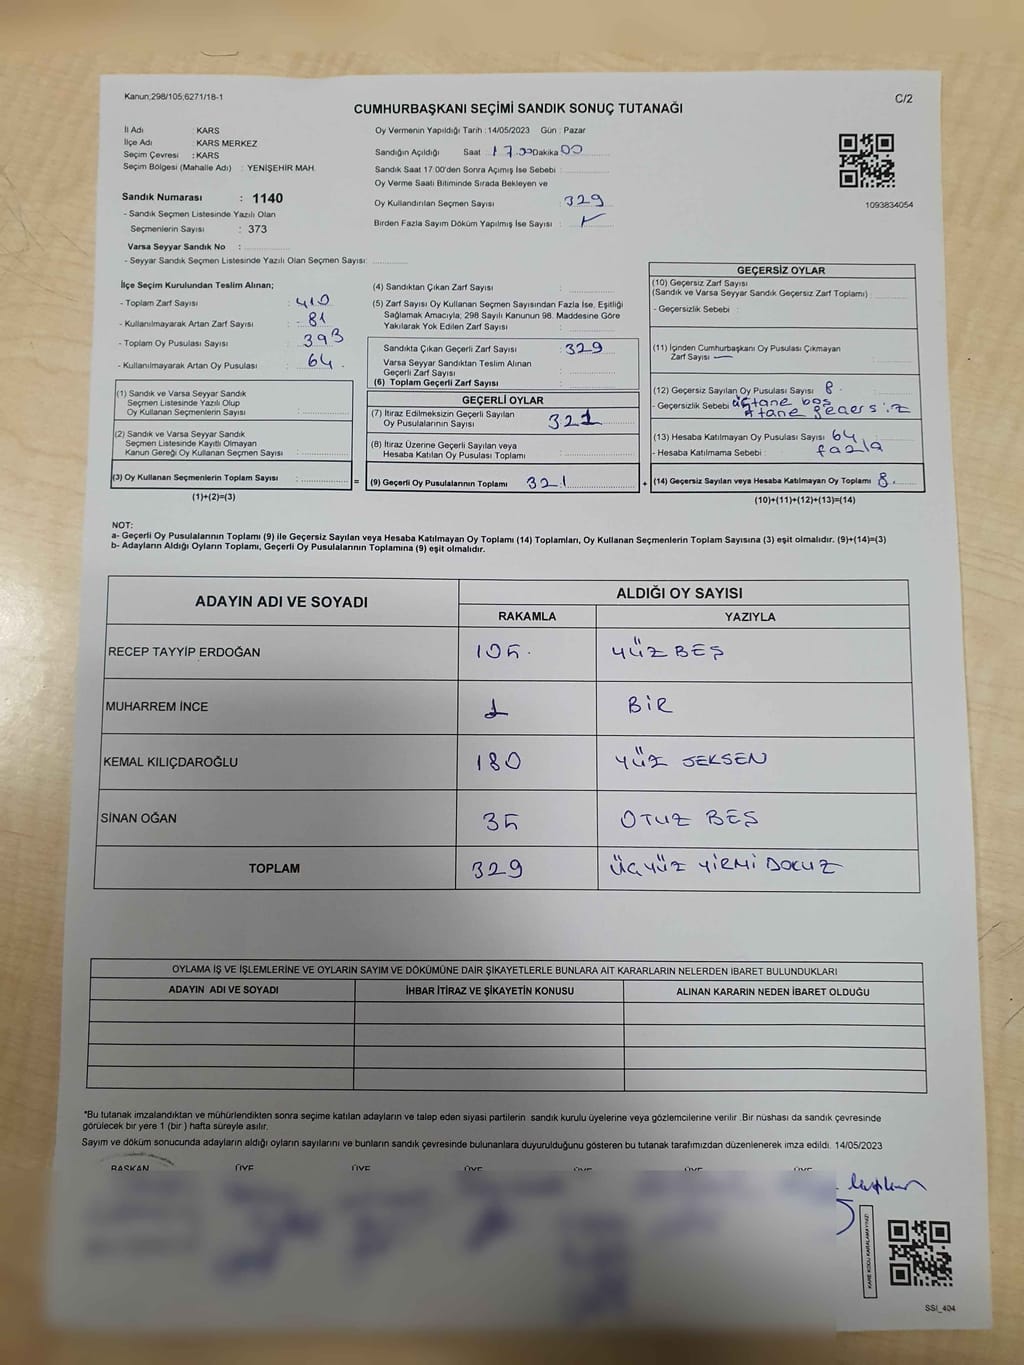 Kanun;298/105;6271/18-1
C/2
CUMHURBAŞKANI SEÇİMİ SANDIK SONUÇ TUTANAĞI
İl Adı : KARS
İlçe Adı : KARS MERKEZ
Seçim Çevresi : KARS
Seçim Bölgesi (Mahalle Adı) : YENİŞEHİR MAH.
Sandık Numarası : 1140
- Sandık Seçmen Listesinde Yazılı Olan
Seçmenlerin Sayısı : 373
Varsa Seyyar Sandık No :
- Seyyar Sandık Seçmen Listesinde Yazılı Olan Seçmen Sayısı:
Oy Vermenin Yapıldığı Tarih :14/05/2023 Gün : Pazar
Sandığın Açıldığı Saat 17.00 Dakika 00
Sandık Saat 17:00'den Sonra Açımış İse Sebebi :
Oy Verme Saati Bitiminde Sırada Bekleyen ve
Oy Kullandırılan Seçmen Sayısı : 329
Birden Fazla Sayım Döküm Yapılmış İse Sayısı :
1093834054
İlçe Seçim Kurulundan Teslim Alınan;
- Toplam Zarf Sayısı : 410
- Kullanılmayarak Artan Zarf Sayısı : 81
- Toplam Oy Pusulası Sayısı : 393
- Kullanılmayarak Artan Oy Pusulası : 64
(1) Sandık ve Varsa Seyyar Sandık
Seçmen Listesinde Yazılı Olup
Oy Kullanan Seçmenlerin Sayısı :
(2) Sandık ve Varsa Seyyar Sandık
Seçmen Listesinde Kayıtlı Olmayan
Kanun Gereği Oy Kullanan Seçmen Sayısı :
(3) Oy Kullanan Seçmenlerin Toplam Sayısı :
(1)+(2)=(3)
(4) Sandıktan Çıkan Zarf Sayısı :
(5) Zarf Sayısı Oy Kullanan Seçmen Sayısından Fazla İse, Eşitliği
Sağlamak Amacıyla; 298 Sayılı Kanunun 98. Maddesine Göre
Yakılarak Yok Edilen Zarf Sayısı :
Sandıkta Çıkan Geçerli Zarf Sayısı : 329
Varsa Seyyar Sandıktan Teslim Alınan
Geçerli Zarf Sayısı :
(6) Toplam Geçerli Zarf Sayısı :
GEÇERLİ OYLAR
(7) İtiraz Edilmeksizin Geçerli Sayılan
Oy Pusulalarının Sayısı : 321
(8) İtiraz Üzerine Geçerli Sayılan veya
Hesaba Katılan Oy Pusulası Toplamı :
= (9) Geçerli Oy Pusulalarının Toplamı : 321
GEÇERSİZ OYLAR
(10) Geçersiz Zarf Sayısı
(Sandık ve Varsa Seyyar Sandık Geçersiz Zarf Toplamı) :
- Geçersizlik Sebebi :
(11) İçinden Cumhurbaşkanı Oy Pusulası Çıkmayan
Zarf Sayısı
(12) Geçersiz Sayılan Oy Pusulası Sayısı 8
- Geçersizlik Sebebi tane boş
tane geçersiz
(13) Hesaba Katılmayan Oy Pusulası Sayısı 64
- Hesaba Katılmama Sebebi : fazla
+ (14) Geçersiz Sayılan veya Hesaba Katılmayan Oy Toplamı 8.
(10)+(11)+(12)+(13)=(14)
NOT:
a- Geçerli Oy Pusulalarının Toplamı (9) ile Geçersiz Sayılan veya Hesaba Katılmayan Oy Toplamı (14) Toplamları, Oy Kullanan Seçmenlerin Toplam Sayısına (3) eşit olmalıdır. (9)+(14)=(3)
b- Adayların Aldığı Oyların Toplamı, Geçerli Oy Pusulalarının Toplamına (9) eşit olmalıdır.
ADAYIN ADI VE SOYADI
ALDIĞI OY SAYISI
RAKAMLA YAZIYLA
RECEP TAYYİP ERDOĞAN 105. YÜZ BEŞ
MUHARREM İNCE 1 BİR
KEMAL KILIÇDAROĞLU 180 YÜZ SEKSEN
SİNAN OĞAN 35 OTUZ BEŞ
TOPLAM 329 ÜÇYÜZ YİRMİ DOKUZ
OYLAMA İŞ VE İŞLEMLERİNE VE OYLARIN SAYIM VE DÖKÜMÜNE DAİR ŞİKAYETLERLE BUNLARA AİT KARARLARIN NELERDEN İBARET BULUNDUKLARI
ADAYIN ADI VE SOYADI İHBAR İTİRAZ VE ŞİKAYETİN KONUSU ALINAN KARARIN NEDEN İBARET OLDUĞU
*Bu tutanak imzalandıktan ve mühürlendikten sonra seçime katılan adayların ve talep eden siyasi partilerin sandık kurulu üyelerine veya gözlemcilerine verilir .Bir nüshası da sandık çevresinde
görülecek bir yere 1 (bir ) hafta süreyle asılır.
Sayım ve döküm sonucunda adayların aldığı oyların sayılarını ve bunların sandık çevresinde bulunanlara duyurulduğunu gösteren bu tutanak tarafımızdan düzenlenerek imza edildi. 14/05/2023
BAŞKAN ÜYE ÜYE ÜYE ÜYE ÜYE ÜYE
KARE KODU KARALAMAYINIZ!
SSI_404